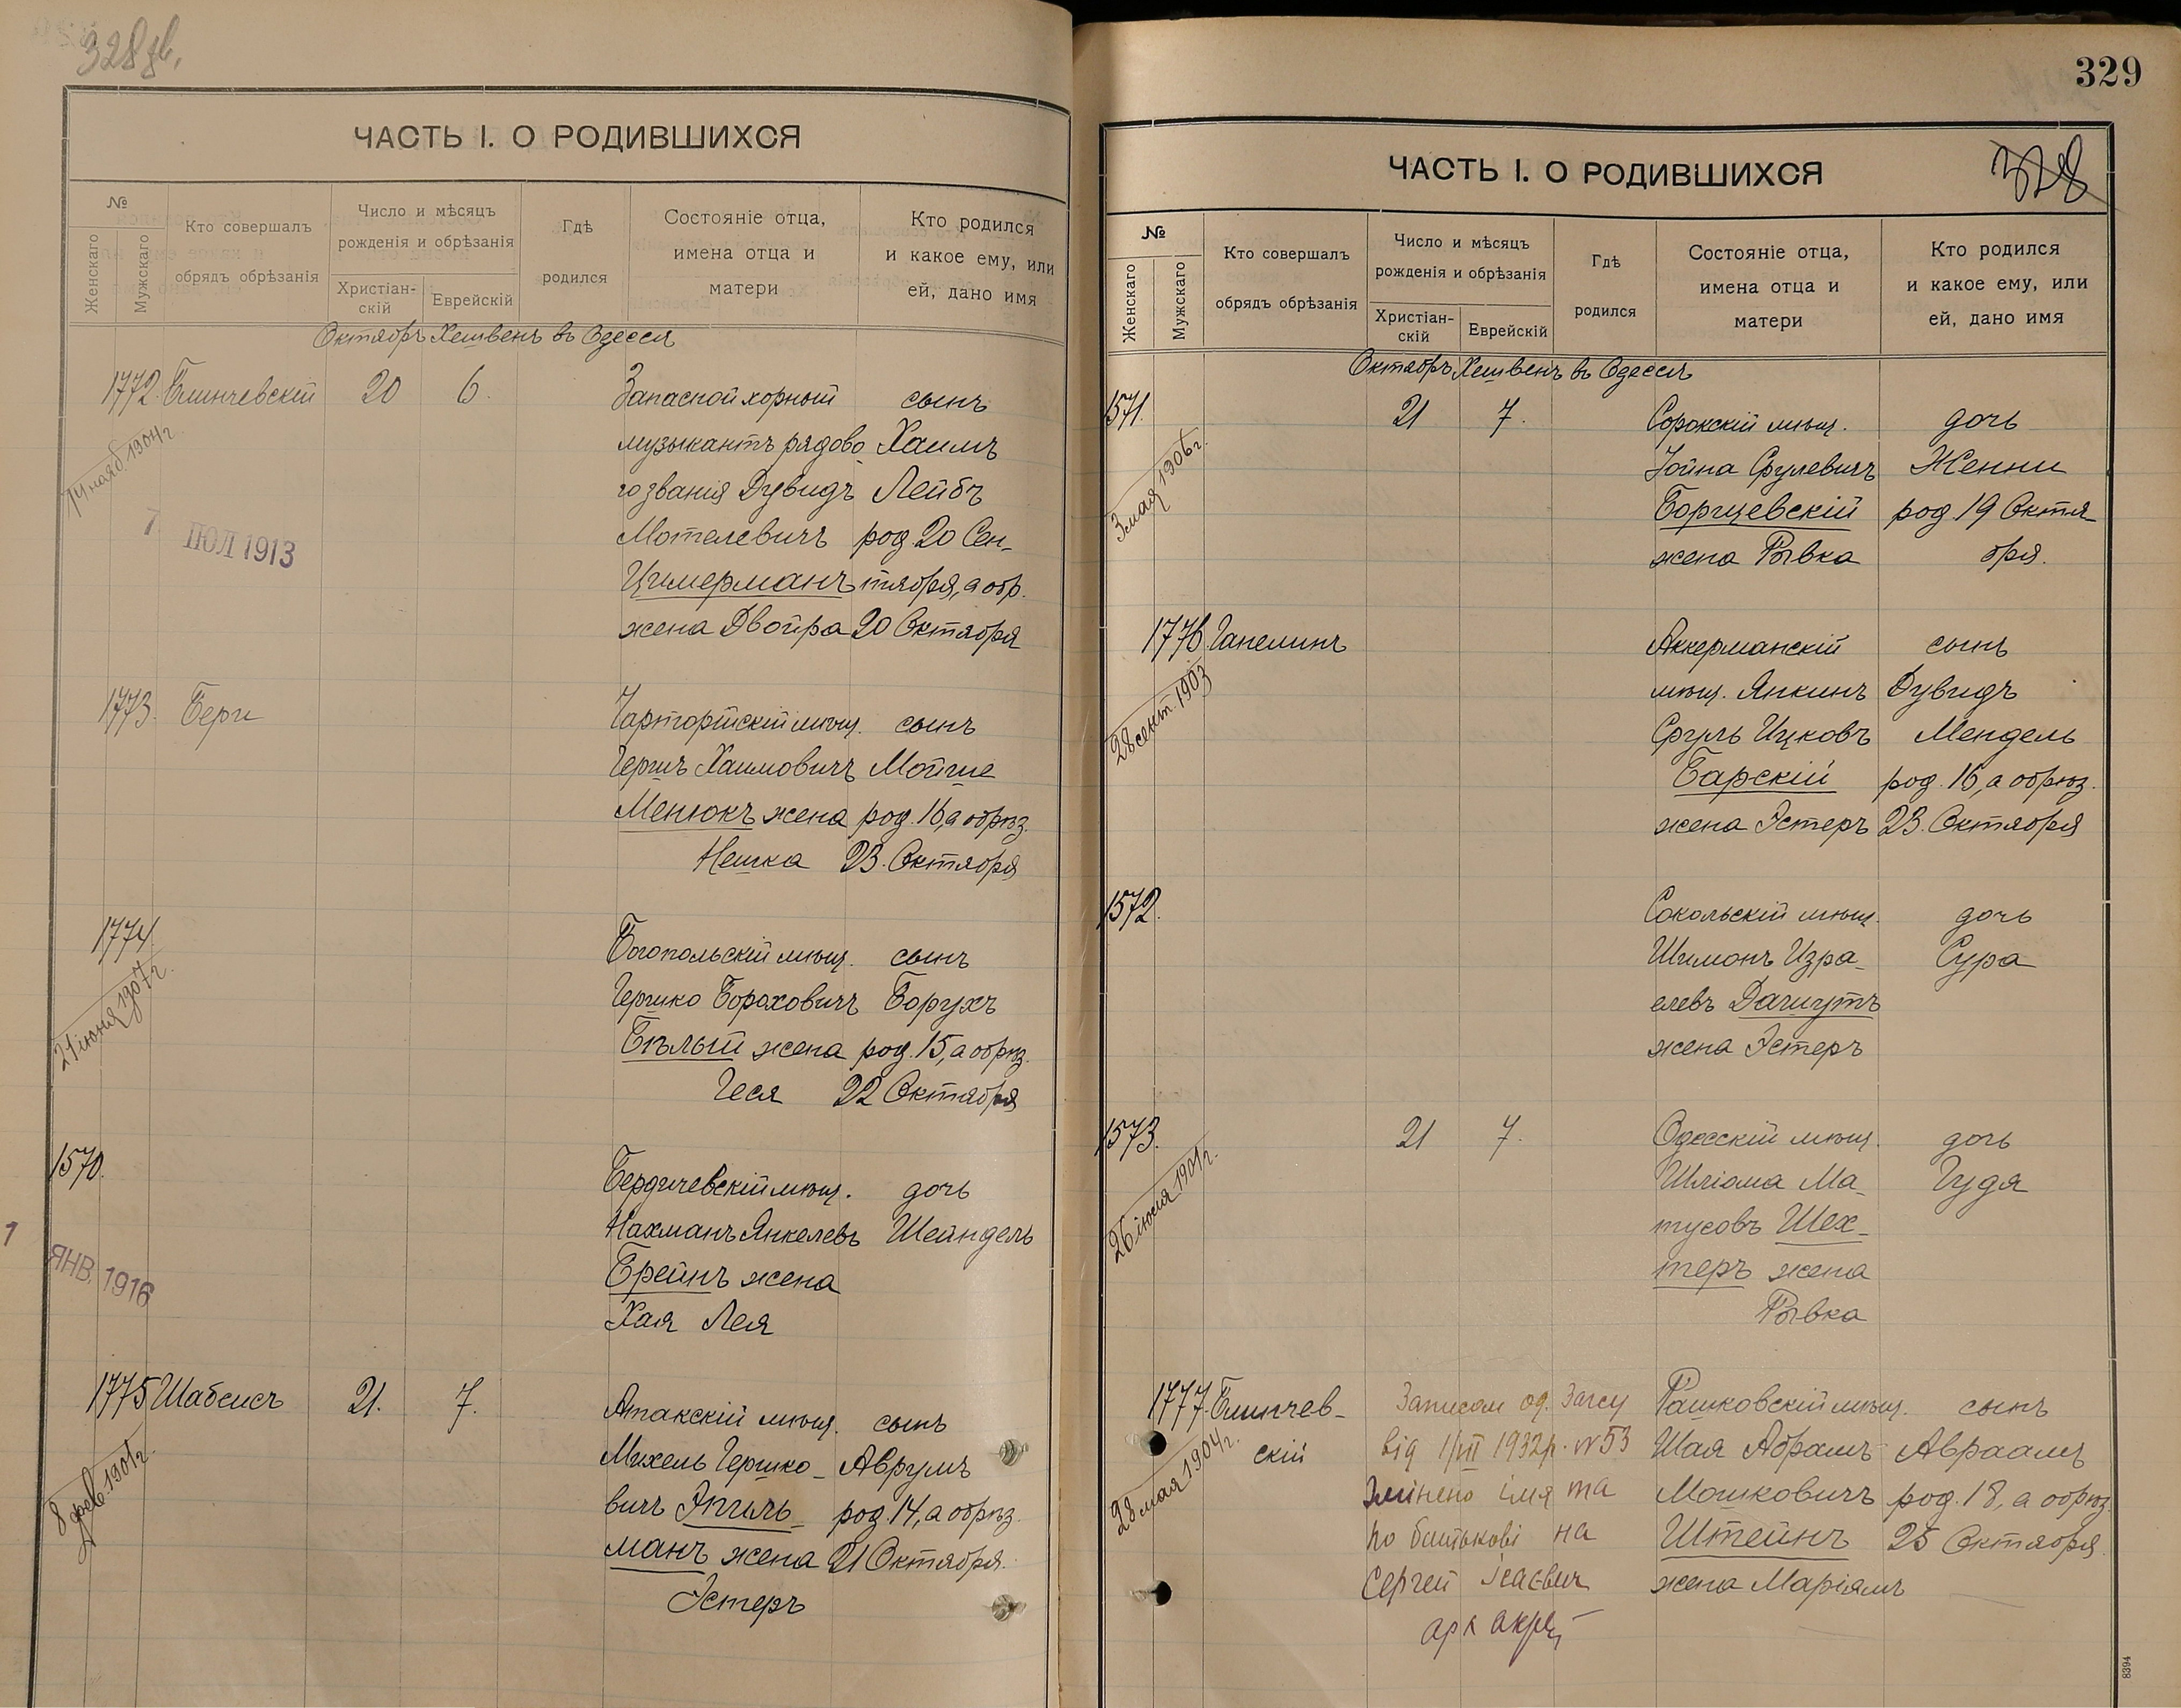 328 зв.
ЧАСТЬ I. О РОДИВШИХСЯ
№
Женскаго
Мужскаго
Кто совершалъ
обрядъ обрѣзанія
Число и мѣсяцъ
рожденія и обрѣзанія
Христіан-
скій
Еврейскій
Гдѣ
родился
Состояніе отца,
имена отца и
матери
Кто родился
и какое ему, или
ей, дано имя
Октябрь Хешвенъ въ Одессѣ
1772. Блинчевскій 20 6. Запасной хорный сынъ
музыкантъ рядово Хаимъ
го званія Дувидъ Лейбъ
Мотелевичъ род. 20 Сен-
Цимерманъ тября, а обр.
жена Двойра 20 Октября
14 нояб. 1904 г.
7 ІЮЛ 1913
1773. Берги Чарторійскій мѣщ. сынъ
Гершъ Хаимовичъ Мойше
Менюкъ жена род. 16, а обрѣз.
Нешка 23. Октября
1774. Богопольскій мѣщ. сынъ
Гершко Бороховичъ Борухъ
Бѣлый жена род. 15, а обрѣз.
Геся 22 Октября
21 іюня 1907 г.
1570. Бердичевскій мѣщ. дочь
Нахманъ Янкелевъ Шейндель
Брейнъ жена
Хая Лея
1 ЯНВ. 1916
1775 Шабсисъ 21. 7. Атакскій мѣщ. сынъ
Михель Гершко- Аврумъ
вичъ Энгиль- род. 14, а обрѣз.
манъ жена 21 Октября.
Эстеръ
8 фев. 1901 г.
329
328
ЧАСТЬ I. О РОДИВШИХСЯ
№
Женскаго
Мужскаго
Кто совершалъ
обрядъ обрѣзанія
Число и мѣсяцъ
рожденія и обрѣзанія
Христіан-
скій
Еврейскій
Гдѣ
родился
Состояніе отца,
имена отца и
матери
Кто родился
и какое ему, или
ей, дано имя
Октябрь Хешвенъ въ Одессѣ
1571. 21 7. Сорокскій мѣщ. дочь
Іойна Срулевичъ Женни
Борщевскій род 19 Октя-
жена Рывка бря.
3 мая 1906 г.
1776. Гапелинъ Аккерманскій сынъ
мѣщ. Янкинъ Дувидъ
Сруль Ицковъ Мендель
Барскій род. 16, а обрѣз.
жена Эстеръ 23. Октября
28 сент. 1903
1572. Сокольскій мѣщ. дочь
Шимонъ Изра- Сура
елевъ Дашутъ
жена Эстеръ
1573. 21 7. Одесскій мѣщ. дочь
Шліома Ма- Гудя
тусовъ Шех-
теръ жена
Рывка
26 іюля 1901 г.
1777. Блинчев- Записом од. Загсу Рашковскій мѣщ. сынъ
скій від 1/VII 1932 р. N 53 Шая Абрамъ Авраамъ
Змінено імя та Мошковичъ род. 18, а обрѣз.
по батькові на Штейнъ 25 Октября.
Сергей Ісаєвич жена Маріямъ
28 мая 1904 г.
8394